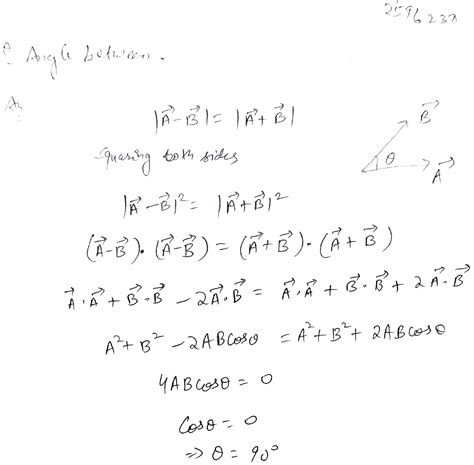 Angle between.
|A⃗-B⃗| = |A⃗+B⃗|
Squaring both sides
B⃗
θ
A⃗
|A⃗-B⃗|² = |A⃗+B⃗|²
(A⃗-B⃗).(A⃗-B⃗) = (A⃗+B⃗).(A⃗+B⃗)
A⃗.A⃗ + B⃗.B⃗ - 2A⃗.B⃗ = A⃗.A⃗ + B⃗.B⃗ + 2A⃗.B⃗
A²+B² - 2ABcosθ = A²+B²+ 2ABcosθ
4ABcosθ = 0
Cosθ = 0
=> θ = 90°